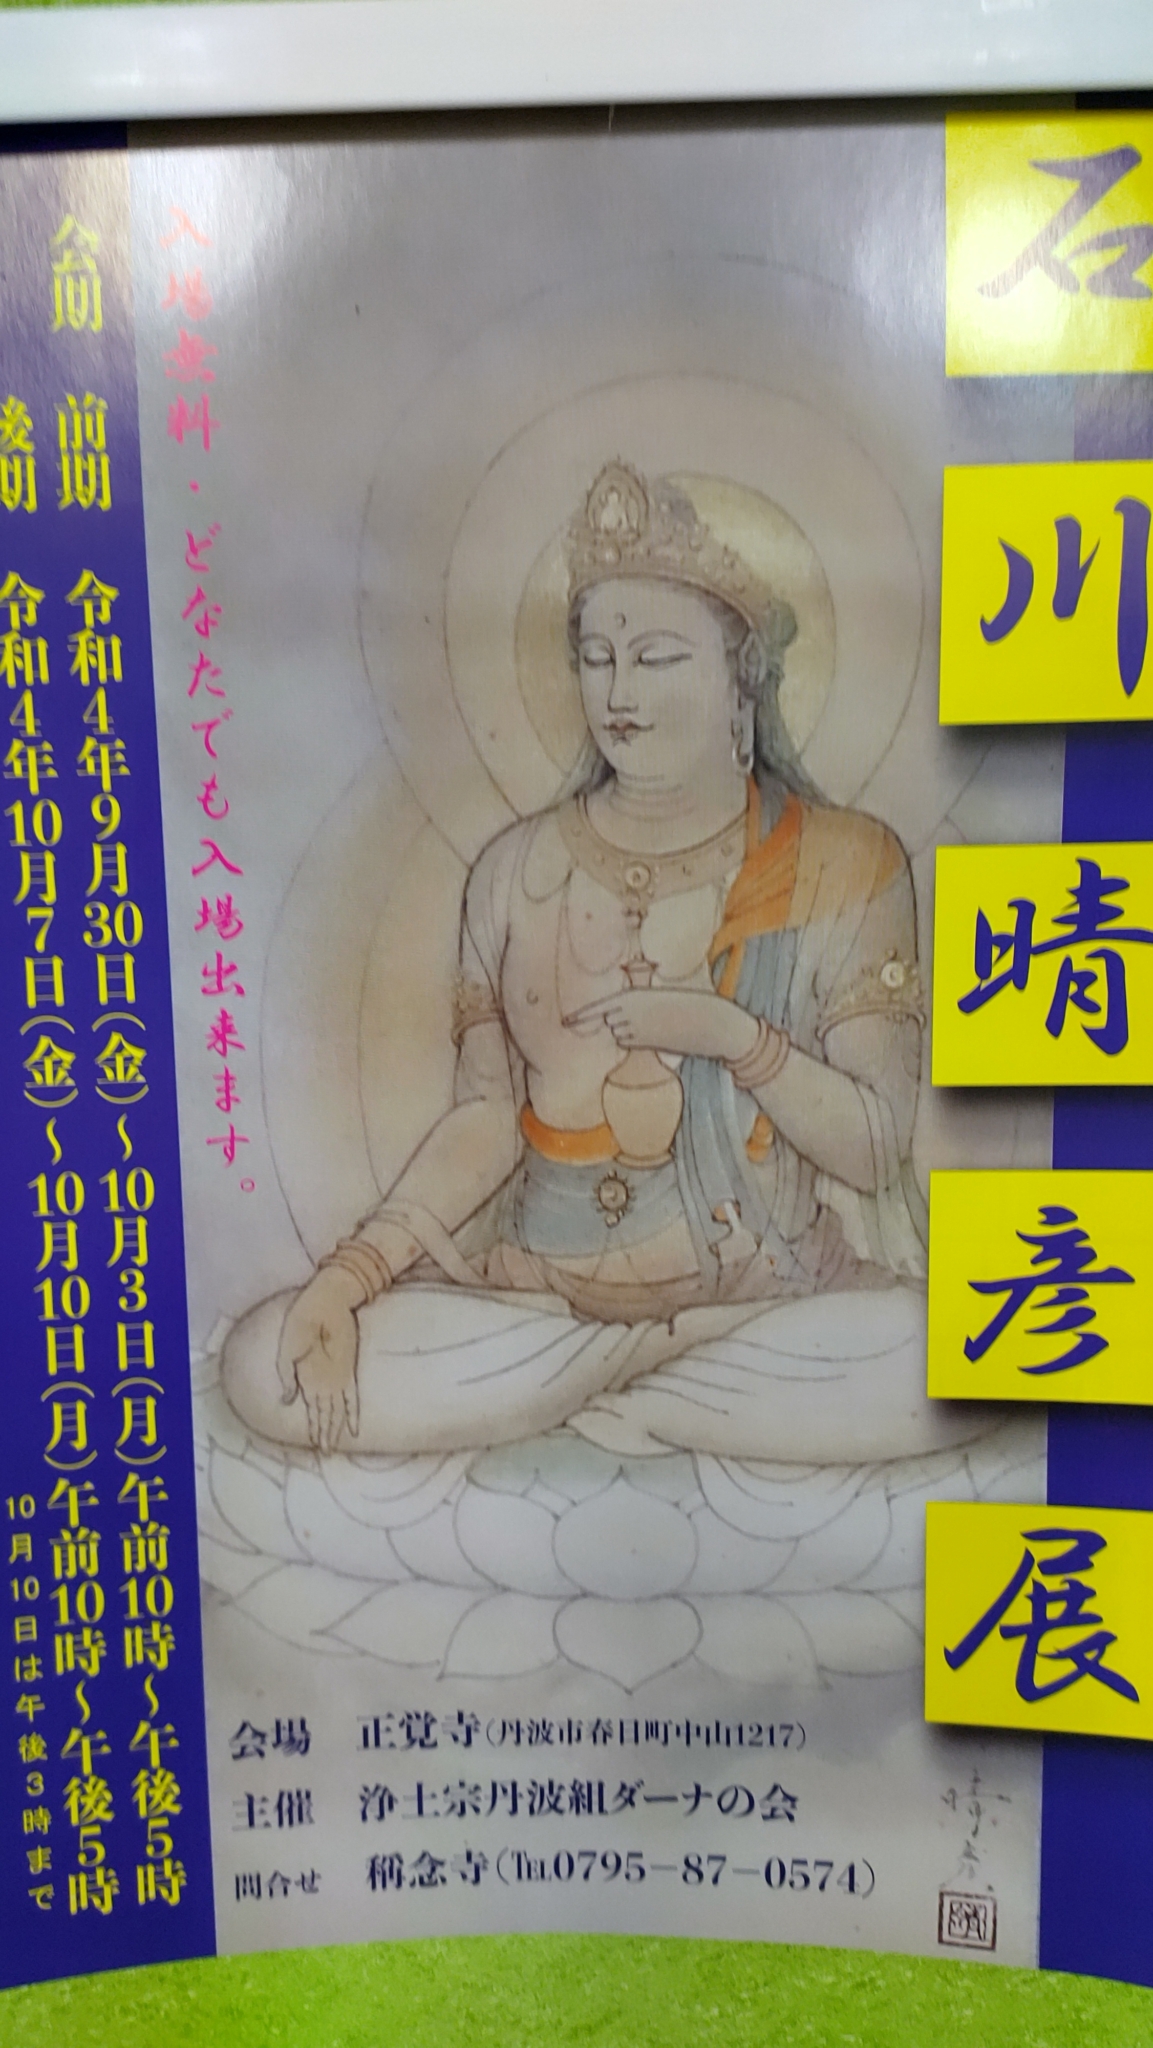 石川晴彦展
入場無料・どなたでも入場出来ます。
会期 前期 令和4年9月30日(金)～10月3日(月)午前10時～午後5時
後期 令和4年10月7日(金)～10月10日(月)午前10時～午後5時
10月10日は午後3時まで
会場 正覚寺(丹波市春日町中山1217)
主催 浄土宗丹波組ダーナの会
問合せ 稱念寺(℡0795-87-0574)